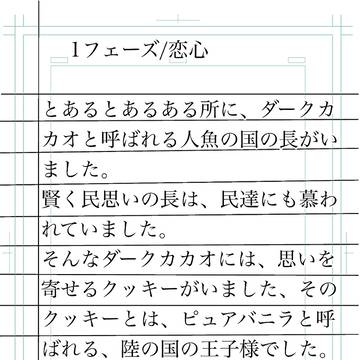 1フェーズ/恋心
とあるとあるある所に、ダークカ
カオと呼ばれる人魚の国の長がい
ました。
賢く民思いの長は、民達にも慕わ
れていました。
そんなダークカカオには、思いを
寄せるクッキーがいました、その
クッキーとは、ピュアバニラと呼
ばれる、陸の国の王子様でした。